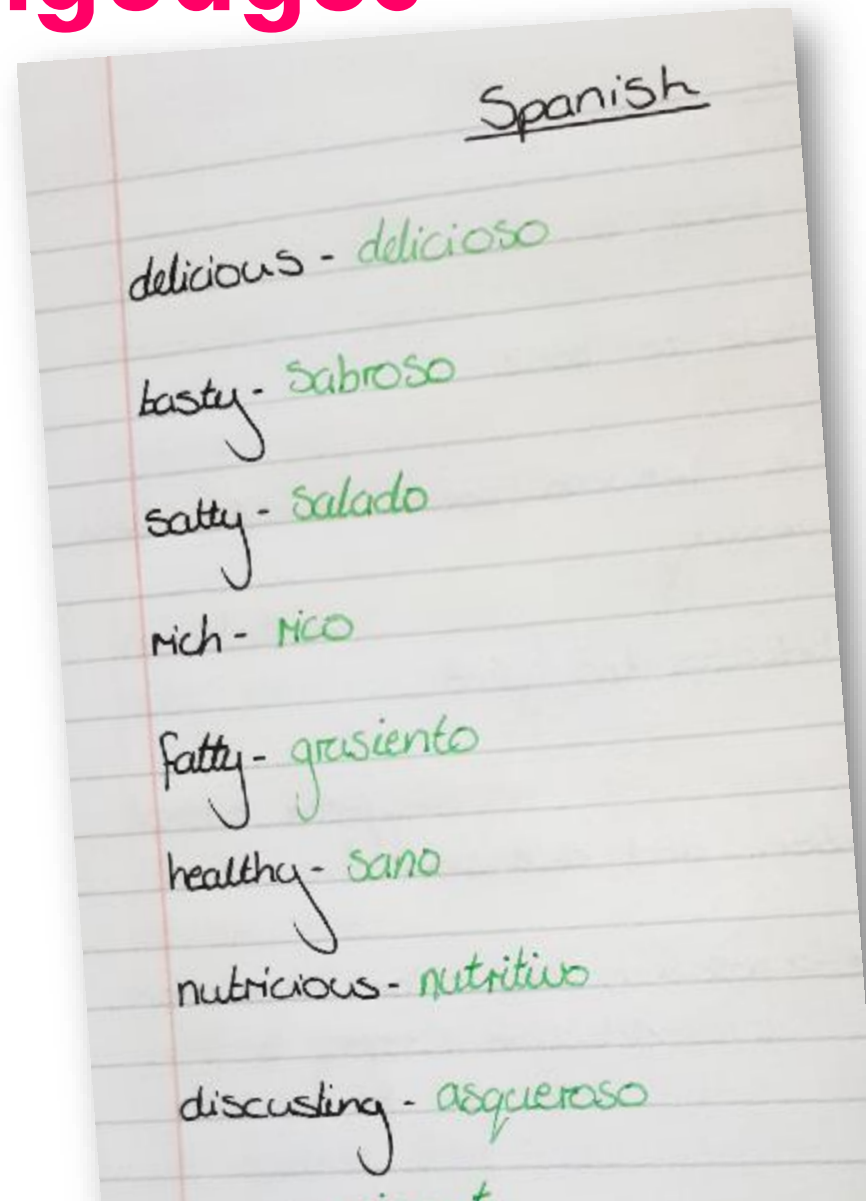 Spanish
delicious - delicioso
tasty - sabroso
salty - salado
rich - rico
fatty - grasiento
healthy - sano
nutricious - nutritivo
discusting - asqueroso